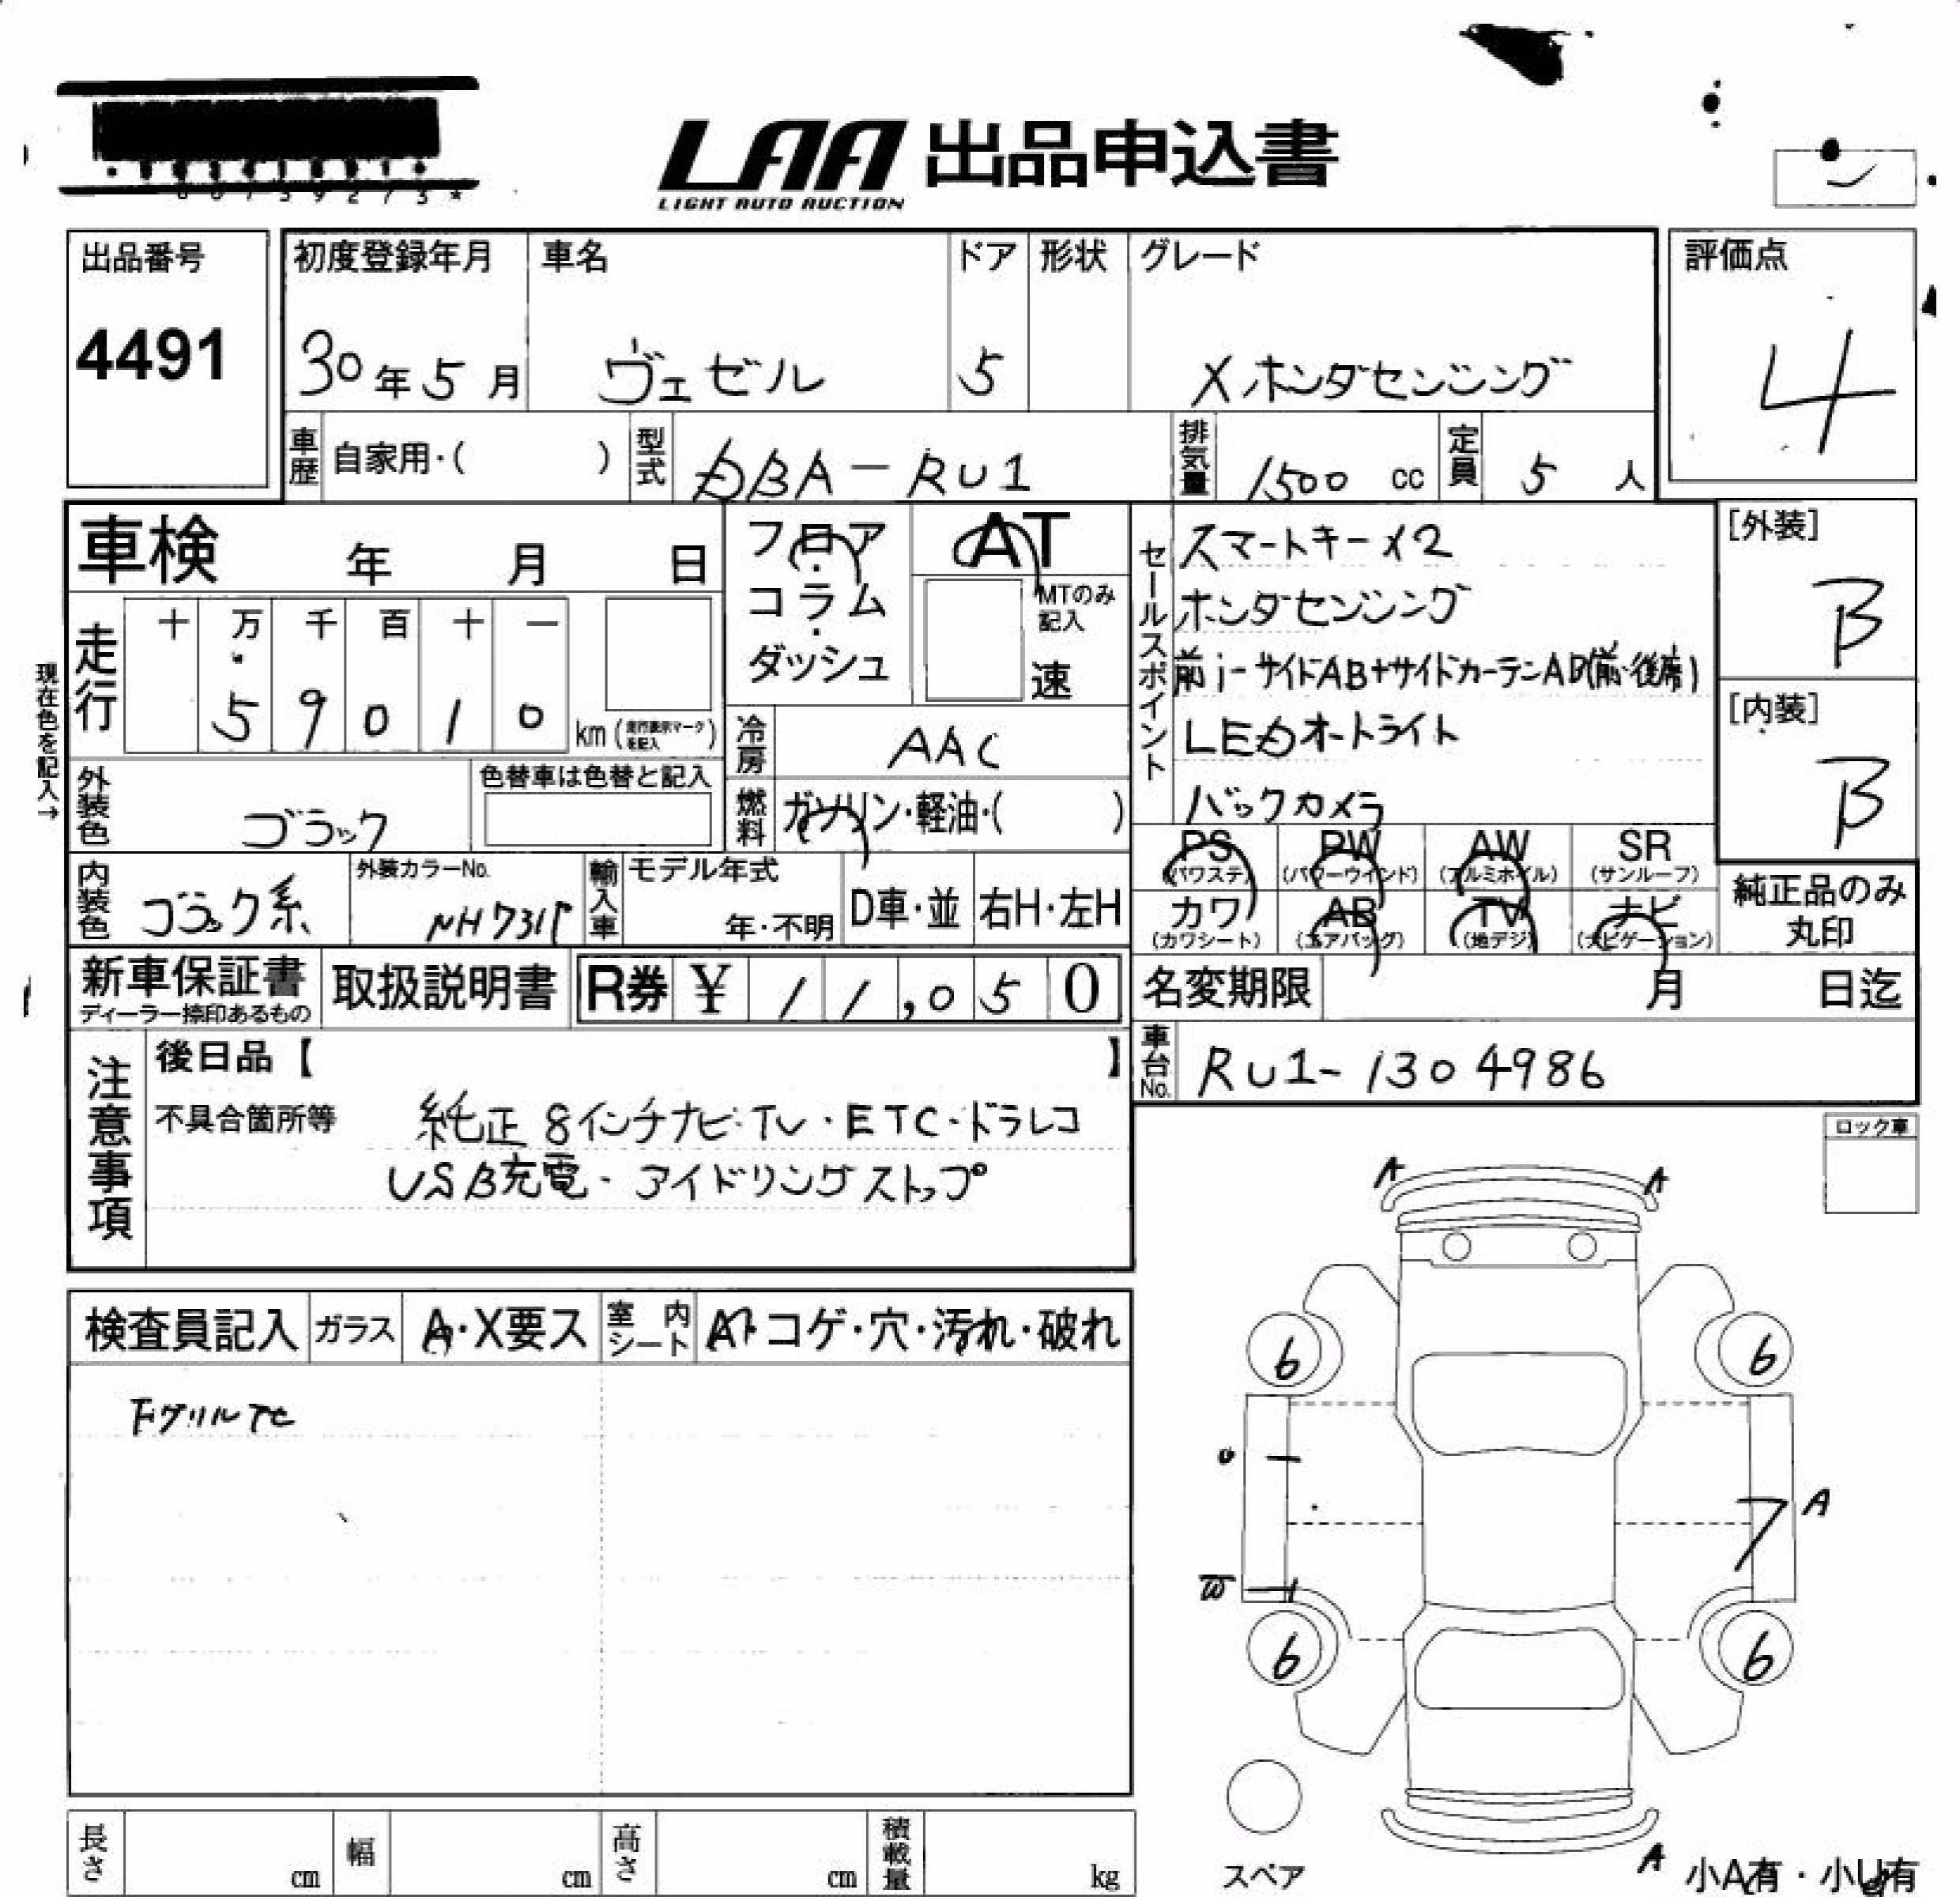 LAA 出品申込書
LIGHT AUTO AUCTION
出品番号
4491
初度登録年月
30年5月
車名
ヴェゼル
ドア
5
形状
グレード
X ホンダセンシング
評価点
4
車歴
自家用・( )
型式
DBA-RU1
排気量
1500 cc
定員
5 人
車検 年 月 日
フロア・コラム・ダッシュ
AT
MTのみ記入
速
セールスポイント
スマートキー×2
ホンダセンシング
前i-サイドAB+サイドカーテンAB(前・後席)
LEDオートライト
バックカメラ
[外装]
B
[内装]
B
現在色を記入→
走行
十 万 千 百 十 一
5 9 0 1 0
km (走行表示マークを記入)
冷房
AAC
外装色
ブラック
色替車は色替と記入
燃料
ガソリン・軽油・( )
PS (パワステ)
PW (パワーウインド)
AW (アルミホイル)
SR (サンルーフ)
カワ (カワシート)
AB (エアバッグ)
TV (地デジ)
ナビ (ナビゲーション)
純正品のみ丸印
内装色
ブラック系
外装カラーNo.
NH731P
輸入車
モデル年式
年・不明
D車・並
右H・左H
新車保証書
ディーラー捺印あるもの
取扱説明書
R券 ¥ 11,050
名変期限 月 日迄
車台No.
RU1-1304986
注意事項
後日品【 】
不具合箇所等
純正8インチナビ・TV・ETC・ドラレコ
USB充電・アイドリングストップ
ロック車
検査員記入
ガラス
A・X要ス
室内シート
A・コゲ・穴・汚れ・破れ
下グリル
A A
6 6
A
6 6
スペア
A
小A有・小U有
長さ cm
幅 cm
高さ cm
積載量 kg